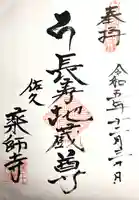 奉拝
令和五年十一月三日
長寿地蔵尊
佐久
薬師寺